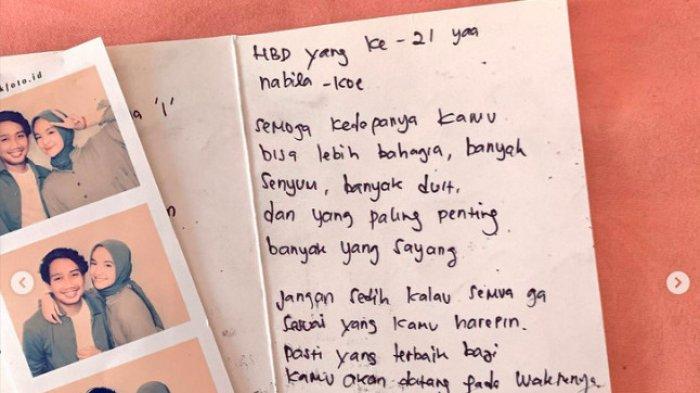 kfoto.id
a '1'
HBD yang ke - 21 yaa
nabila - koe
semoga kedepanya kamu
bisa lebih bahagia, banyak
senyum, banyak duit,
dan yang paling penting
banyak yang sayang
Jangan sedih kalau semua ga
sesuai yang kamu harepin.
pasti yang terbaik bagi
kamu akan datang pada waktunya